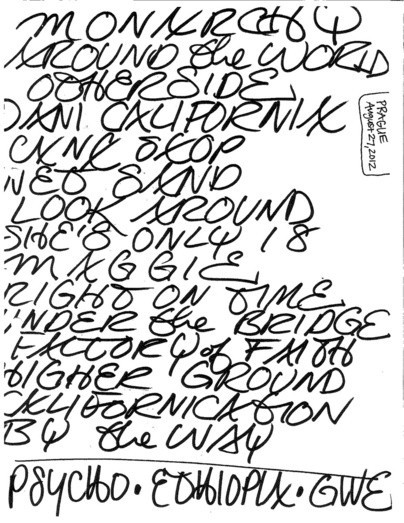 MONARCHY
AROUND the WORLD
OTHERSIDE
DANI CALIFORNIA
PRAGUE
August 27, 2012
CANT STOP
WET SAND
LOOK AROUND
SHE'S ONLY 18
MAGGIE
RIGHT ON TIME
UNDER the BRIDGE
FACTORY of FAITH
HIGHER GROUND
CALIFORNICATION
BY the WAY
PSYCHO • ETHIOPIA • GWE